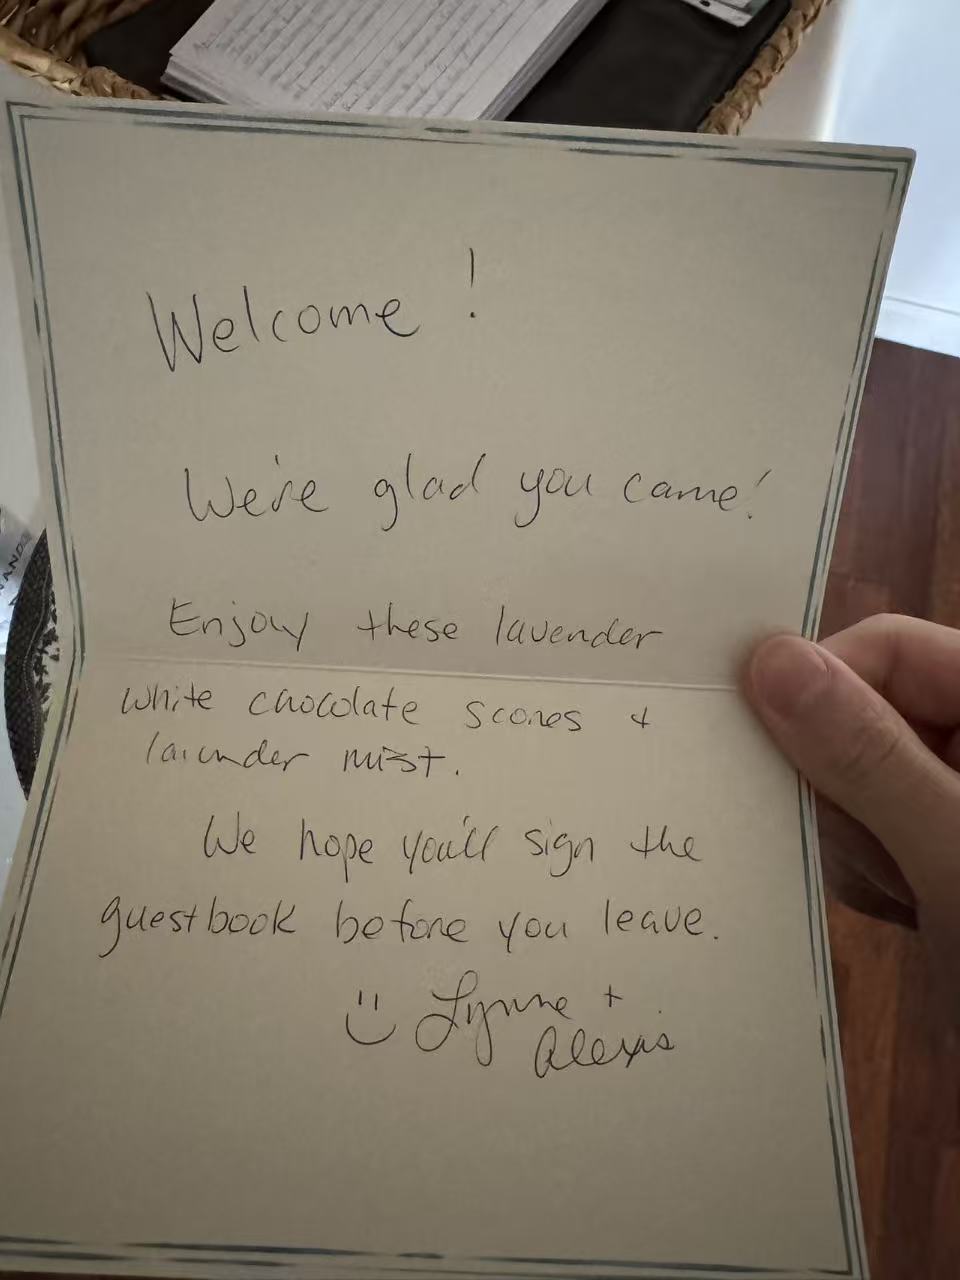 Welcome!
We're glad you came!
Enjoy these lavender
white chocolate scones +
lavender mist.
We hope you'll sign the
guestbook before you leave.
Lynne +
Alexis